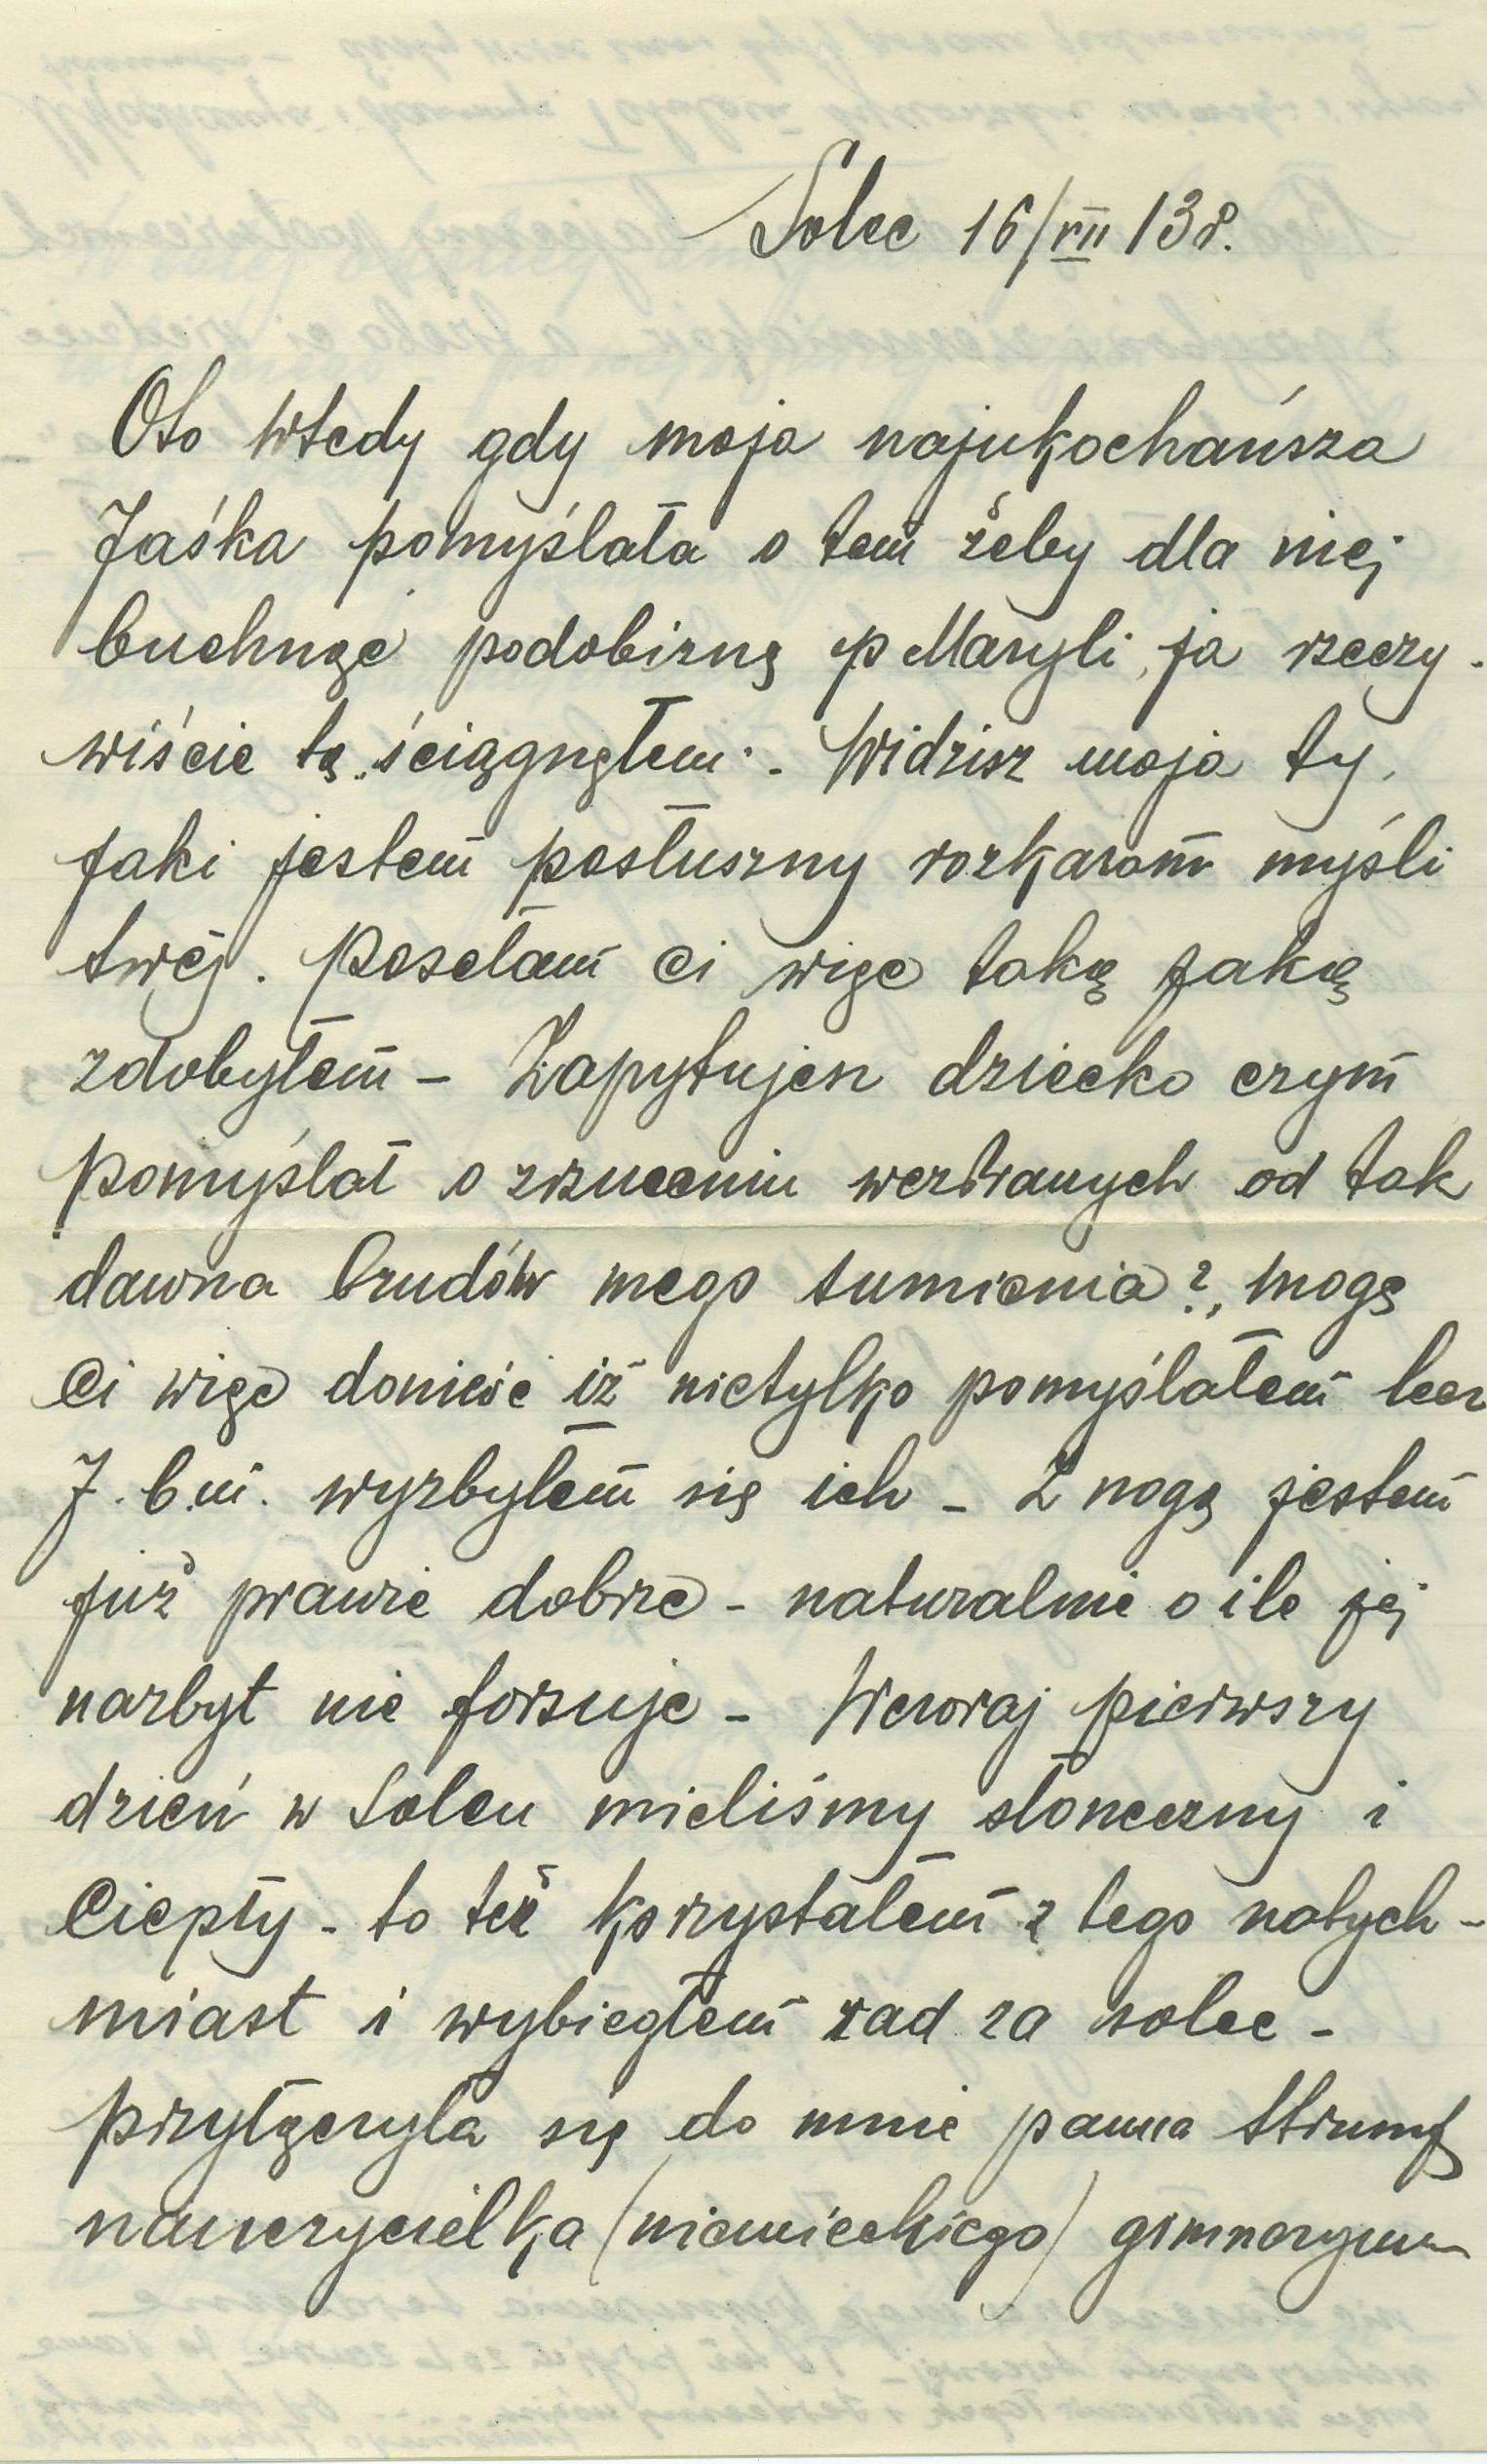 Solec 16/VII 138.
Oto wtedy gdy moja najukochańsza
Jaśka pomyślała o tem żeby dla niej
buchnąć podobiznę p Maryli, ja rzeczy-
wiście tę „ściągnęłem". Widzisz moja ty,
jaki jestem posłuszny rozkazom myśli
twej. Posełam Ci więc taką jaką
zdobyłem – Zapytujesz dziecko czym
pomyślał o zrzuceniu wezbranych od tak
dawna brudów mego sumienia?, mogę
Ci więc donieść iż nietylko pomyślałem lecz
J. b. m. wyzbyłem się ich – Z nogą jestem
już prawie dobrze – naturalnie o ile jej
nazbyt nie forsuje – Wczoraj pierwszy
dzień w Solcu mieliśmy słoneczny i
Ciepły – to też korzystałem z tego natych-
miast i wybiegłem rad za solec –
przyłączyła się do mnie panna Strumf
nauczycielka (niemieckiego) gimnazjum